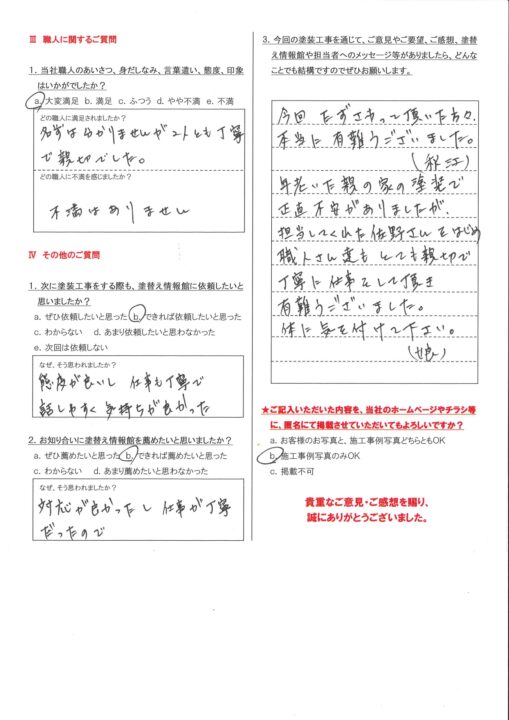 Ⅲ 職人に関するご質問
1. 当社職人のあいさつ、身だしなみ、言葉遣い、態度、印象
はいかがでしたか？
a. 大変満足 b. 満足 c. ふつう d. やや不満 e. 不満
どの職人に満足されましたか？
名前は分かりませんが2人とも丁寧
で親切でした。
どの職人に不満を感じましたか？
不満はありません
Ⅳ その他のご質問
1. 次に塗装工事をする際も、塗替え情報館に依頼したいと
思いましたか？
a. ぜひ依頼したいと思った b. できれば依頼したいと思った
c. わからない d. あまり依頼したいと思わなかった
e. 次回は依頼しない
なぜ、そう思われましたか？
態度が良いし 仕事も丁寧で
話しやすく 気持ちが良かった
2. お知り合いに塗替え情報館を薦めたいと思いましたか？
a. ぜひ薦めたいと思った b. できれば薦めたいと思った
c. わからない d. あまり薦めたいと思わなかった
なぜ、そう思われましたか？
対応が良かったし 仕事が丁寧
だったので
3. 今回の塗装工事を通じて、ご意見やご要望、ご感想、塗替
え情報館や担当者へのメッセージ等がありましたら、どんな
ことでも結構ですのでぜひお願いします。
今回 たずさわって頂いた方々、
本当に 有難うございました。
(秋江)
年老いた親の家の塗装で
正直 不安がありましたが、
担当してくれた佐野さんをはじめ
職人さん達も とても親切で
丁寧に仕事をして頂き
有難うございました。
体に気を付けて下さい。
(娘)
★ご記入いただいた内容を、当社のホームページやチラシ等
に、匿名にて掲載させていただいてもよろしいですか？
a. お客様のお写真と、施工事例写真どちらともOK
b. 施工事例写真のみOK
c. 掲載不可
貴重なご意見・ご感想を賜り、
誠にありがとうございました。